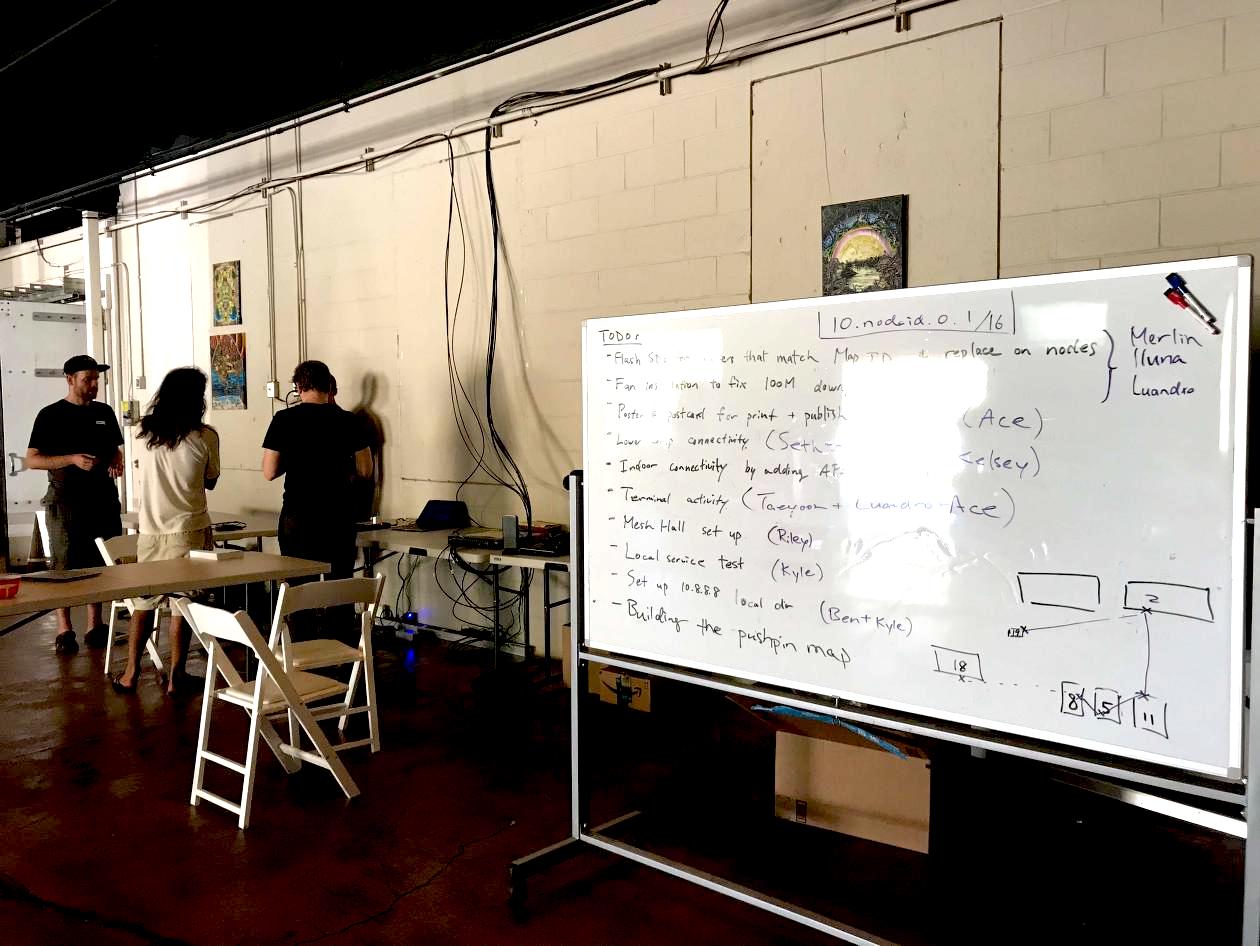 10.nodeid.0.1/16
TODO:
- Flash that match Map ID replace on nodes
Merlin
Iluna
Luandro
- Fan to fix 100M down
- Poster + postcard for print + publish (Ace)
- Lower connectivity (Seth
- Indoor connectivity by adding AP
- Terminal activity (Taeyoon + Luandro + Ace)
- Mesh Hall set up (Riley)
- Local service test (Kyle)
- Set up 10.8.8.8 local dir (Ben + Kyle)
- Building the pushpin map
2
18
8
5
11